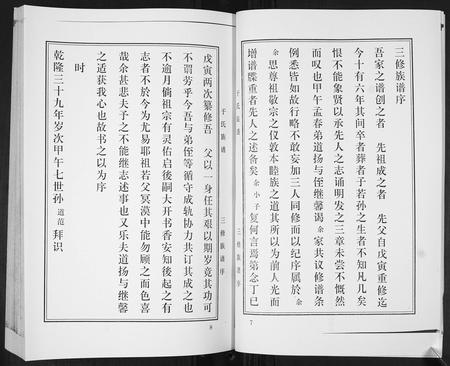 三修族谱序
吾家之谱创之者　先祖成之者　先父自戊寅重修迄
今十有六年其间卒者葬者子若孙之生者不知凡几矣
恨不能象贤以承先人之志诵明发之三章未尝不慨然
而叹也甲午孟春弟道扬与侄继馨谒　余家共议修谱条
例悉皆如故行略不敢妄加三人同修而以纪序属於　余
余思尊祖敬宗之仪敦本睦族之道其所以为前人光而
增谱牒重者先人之述备矣　余小子复何言焉第念丁巳
于氏族谱
三修族谱序
7
戊寅两次纂修吾　父以一身任其艰以期岁竟其功可
不谓劳乎今吾与弟侄等循守成轨协力共订其成之也
不逾月倘祖宗有灵佑启後嗣大开书香安知後起之有
志者不於今为尤易耶祖若父冥漠中能勿顾之而色喜
哉余甚悲夫予之不能继志述事也又乐夫道扬与继馨
之适获我心也故书之以为序
时
乾隆三十九年岁次甲午七世孙　道范　拜识
于氏族谱
三修族谱序
8